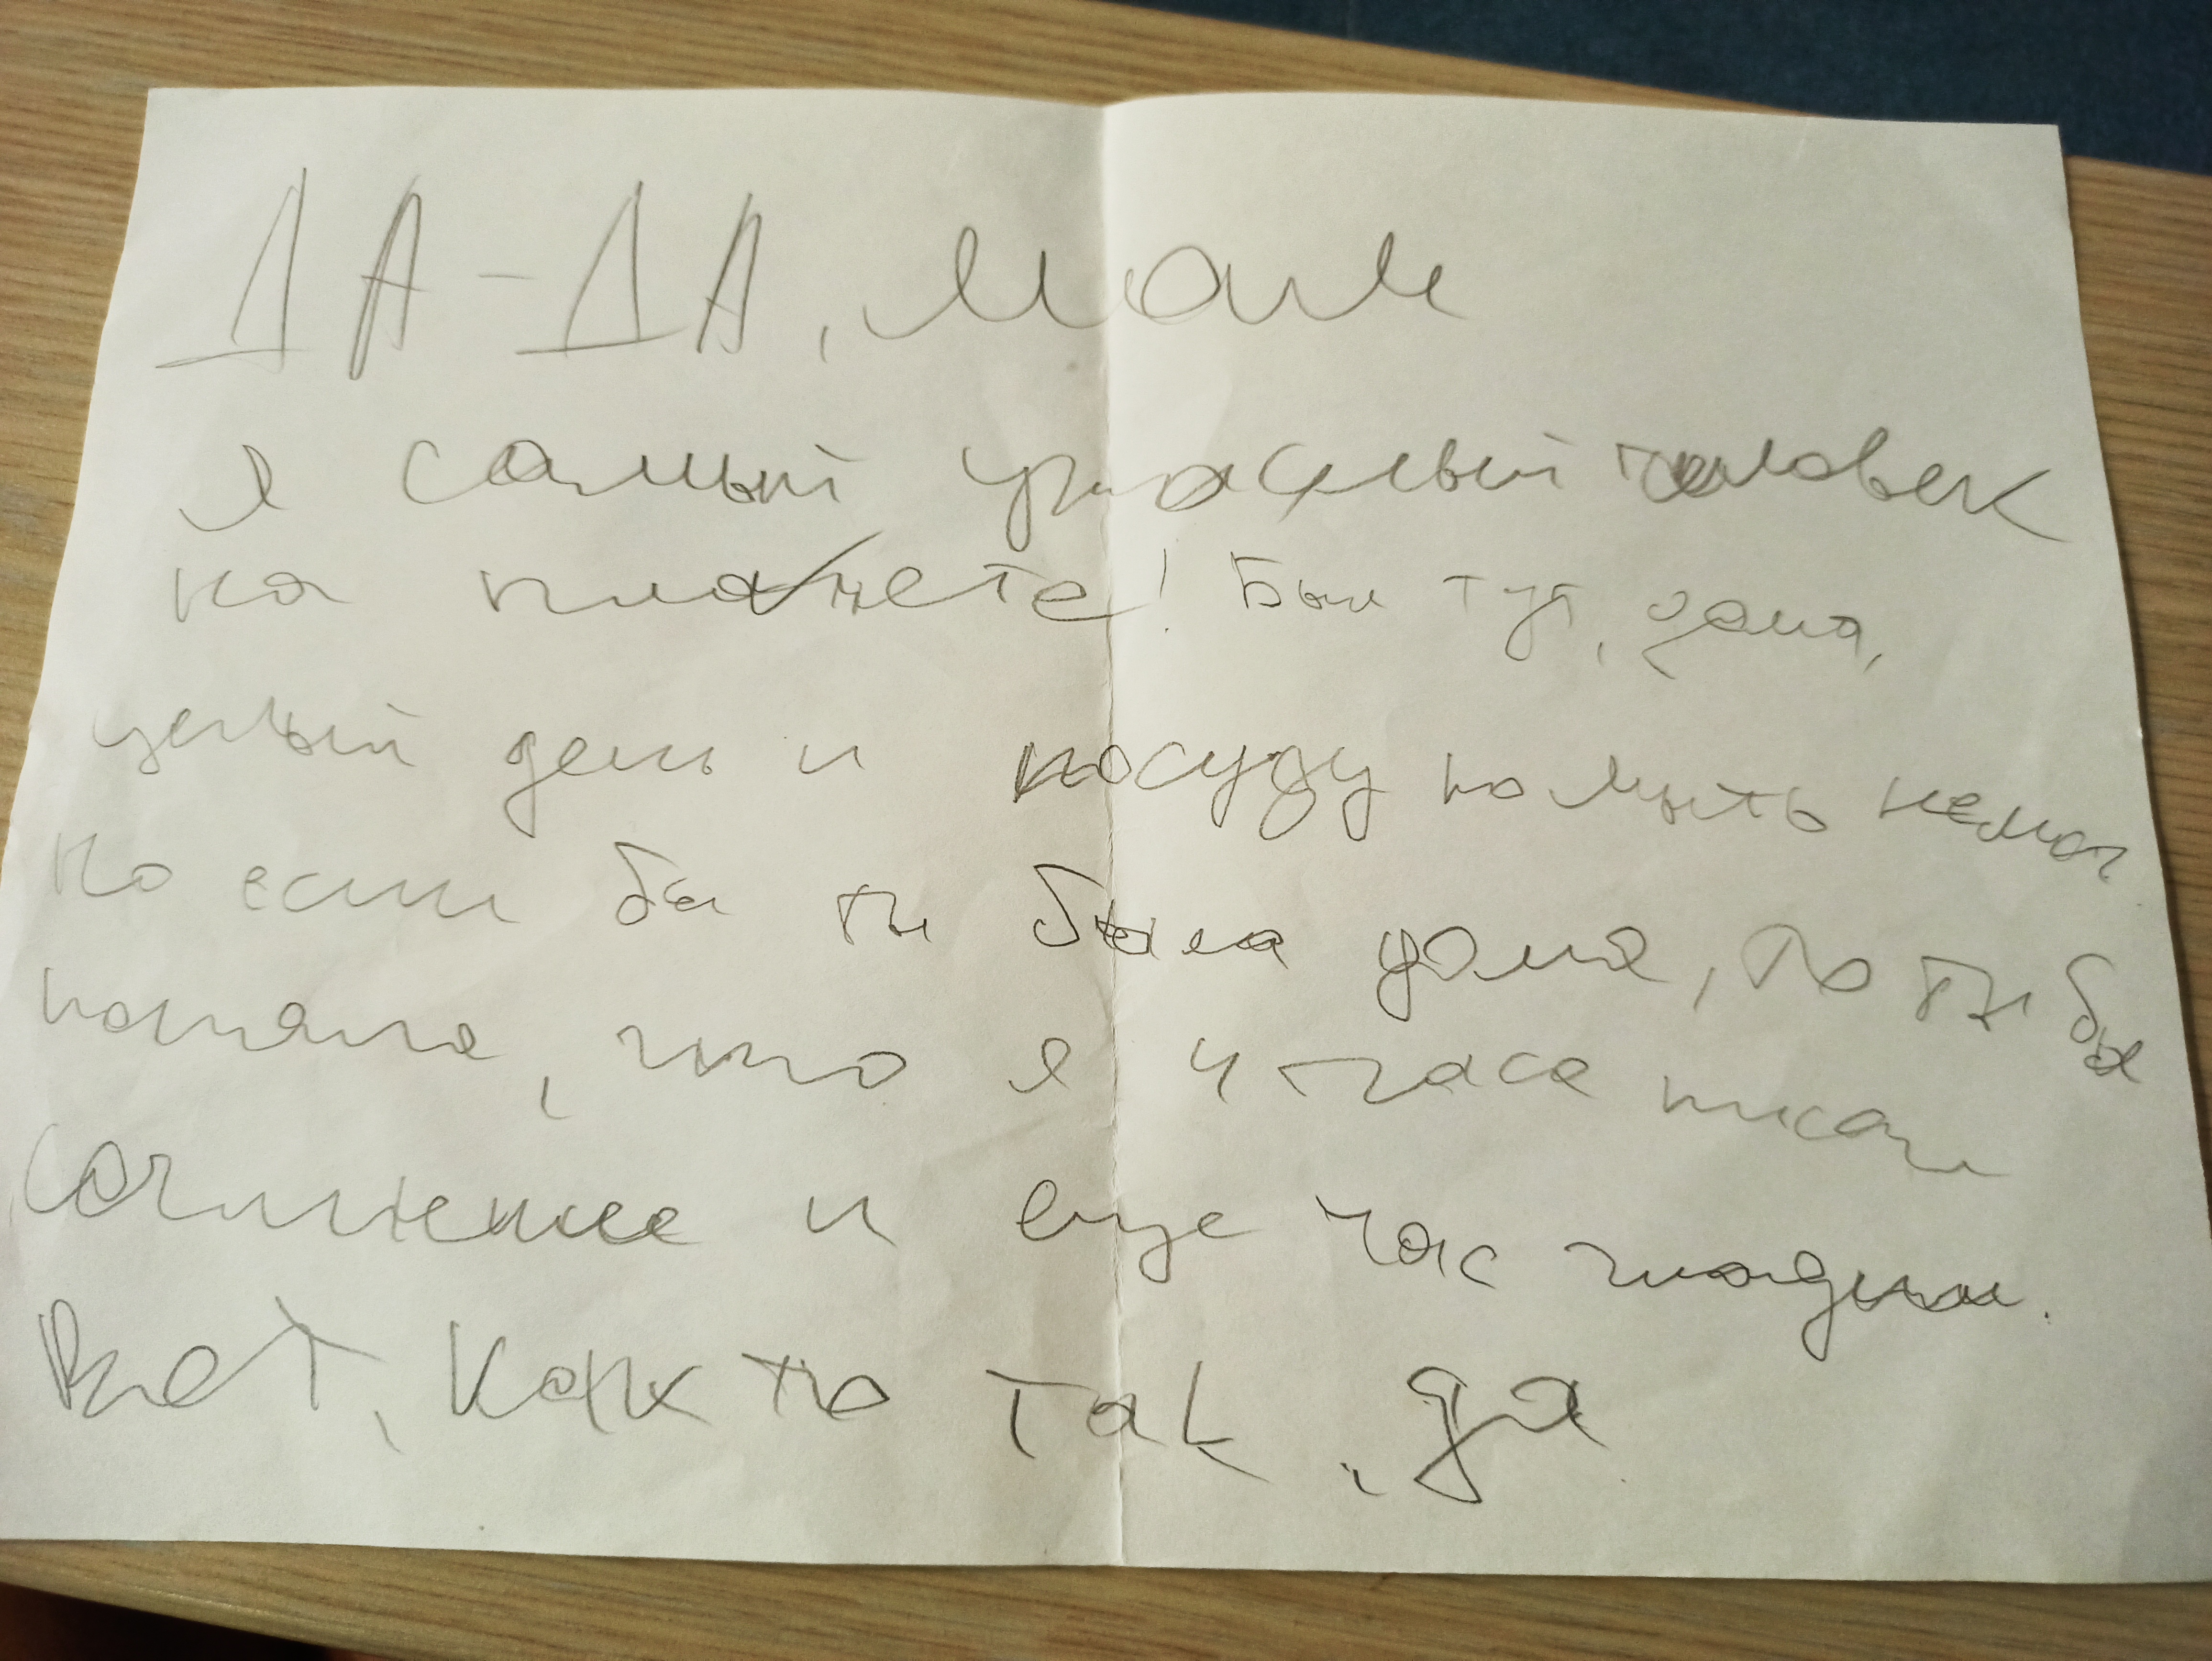 ДА-ДА, мам
я самый ужасный человек
на планете! Был тут, дома,
целый день и посуду помыть не мог.
Но если бы ты была дома, то ты бы
поняла, что я 4 часа писал
сочинение и еще час гладил.
Вот, как то так, да